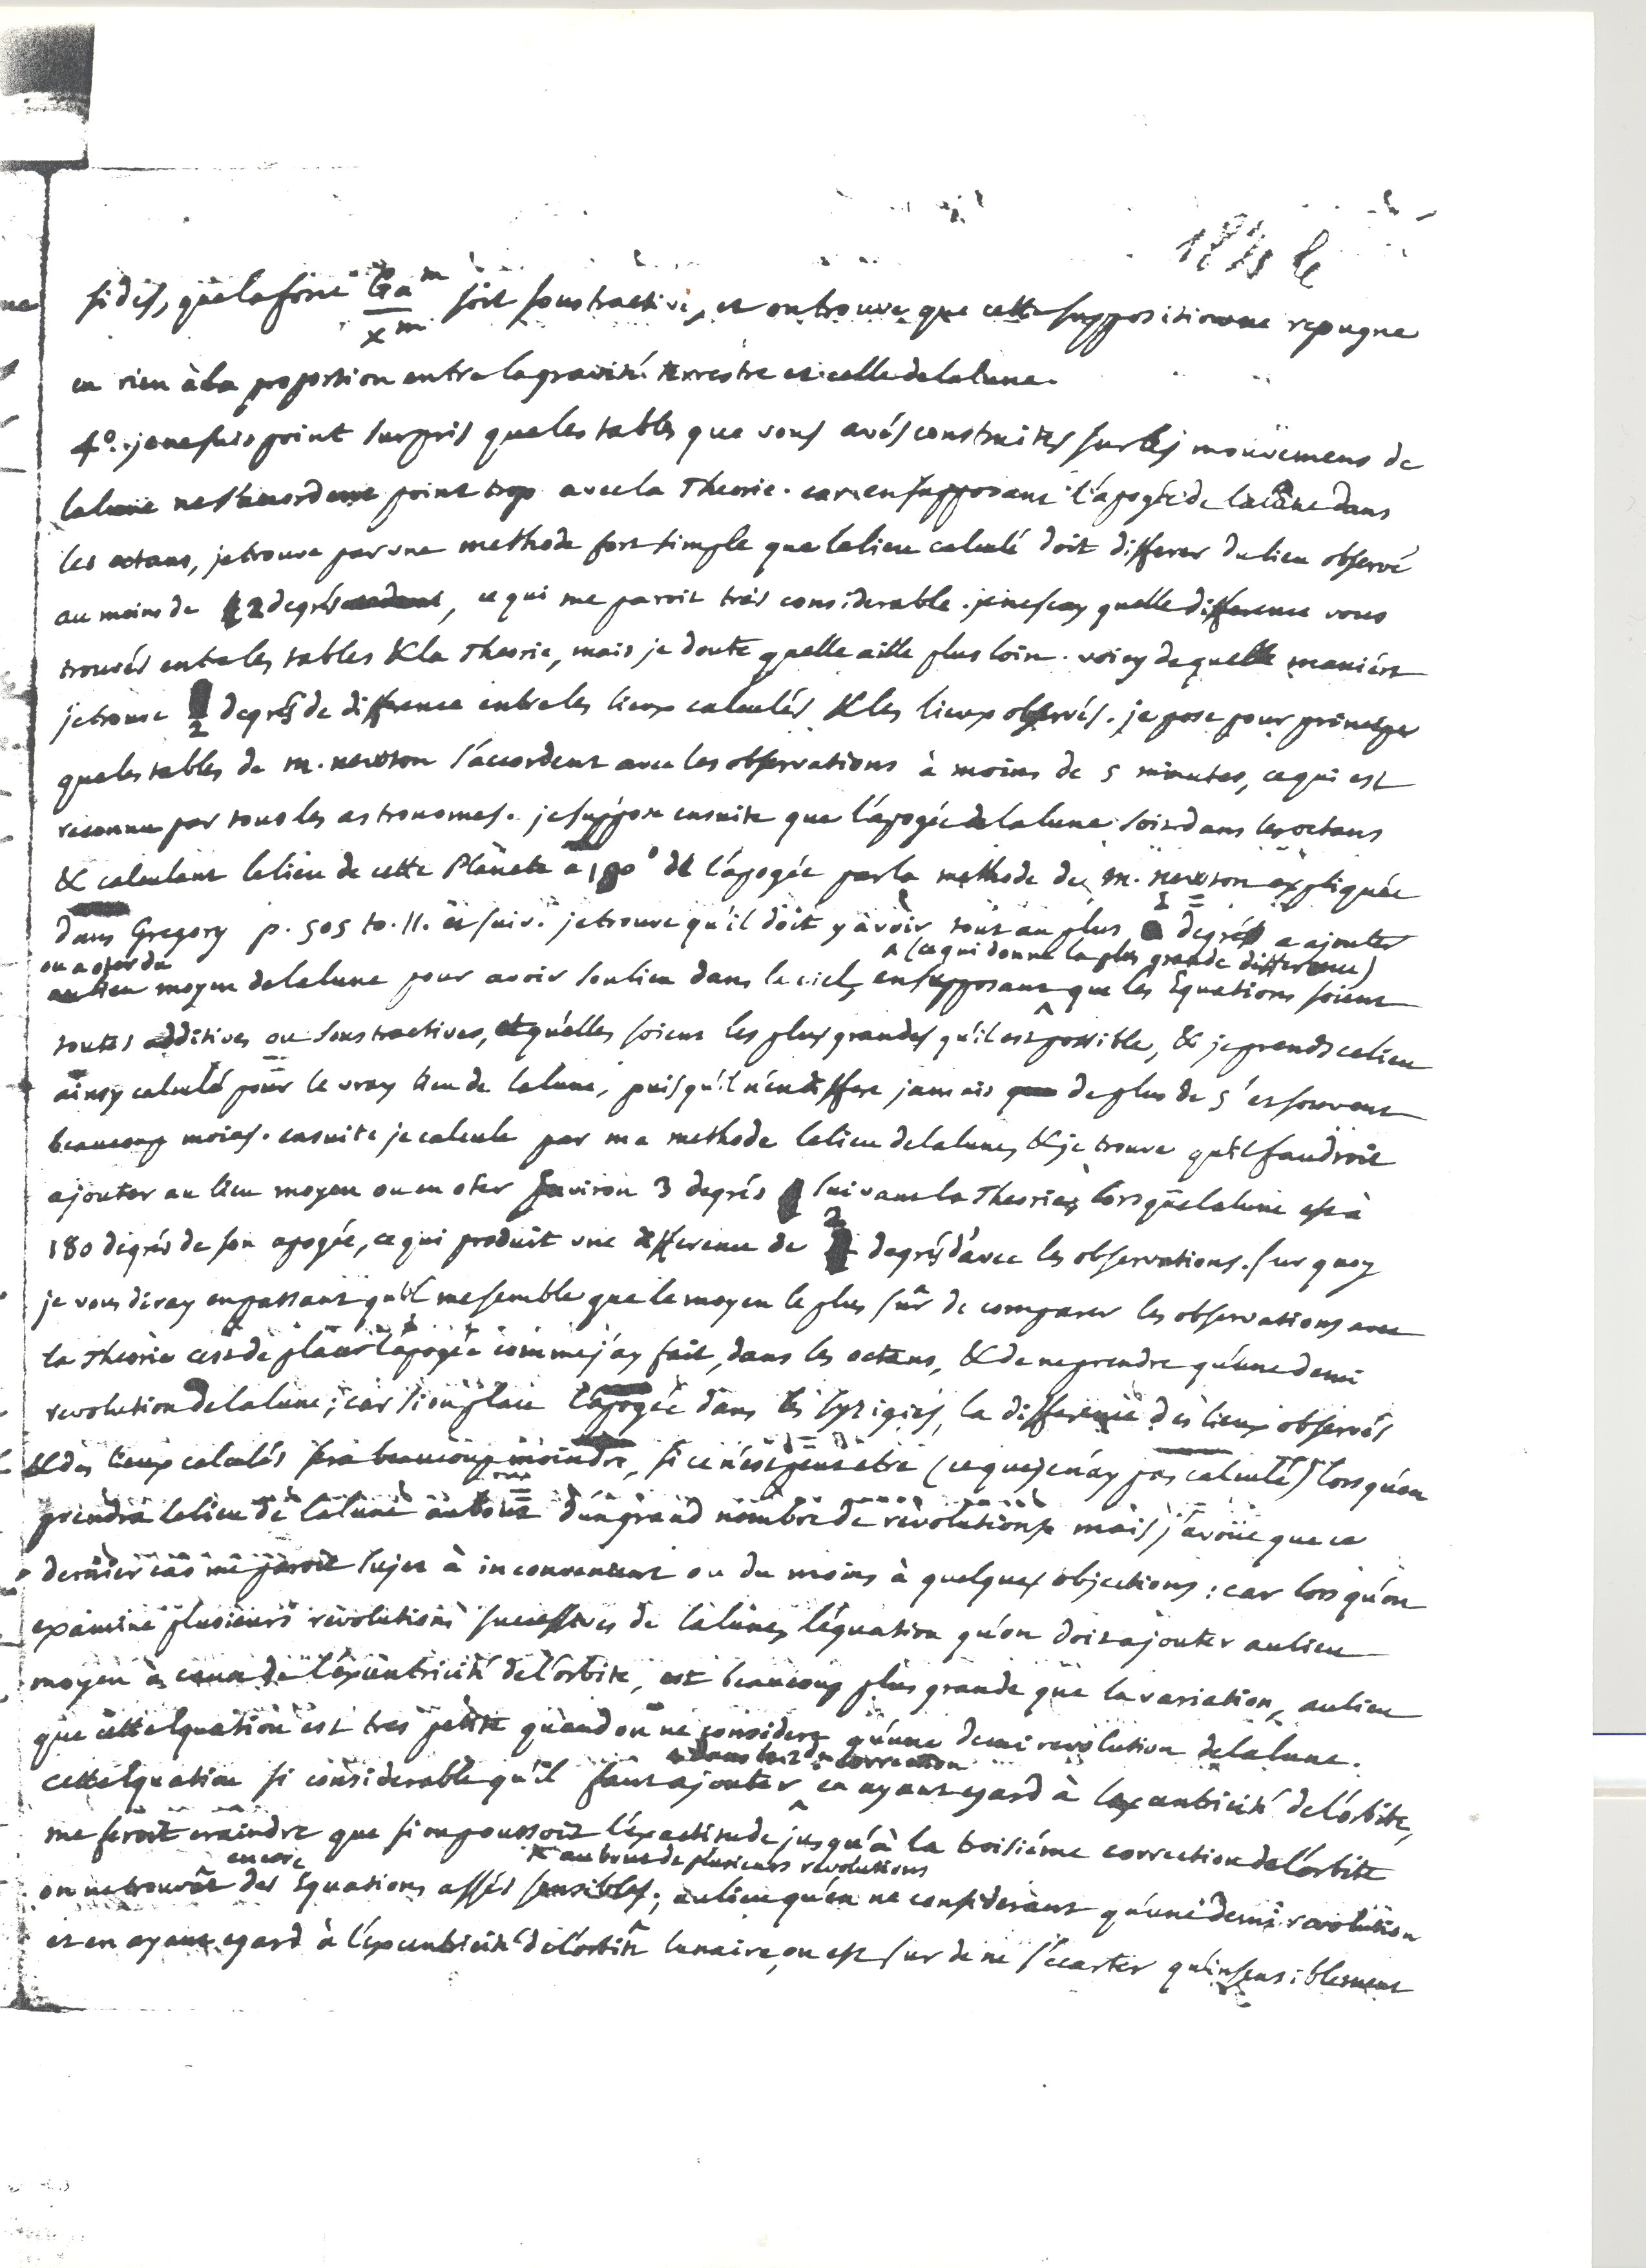 si dis, que la force Ga^m/x^m soit soustractive, et on trouve que cette supposition ne repugne
en rien à la proportion entre la gravité terrestre et celle de la lune.
4°. je ne suis point surpris que les tables que vous avés construites sur les mouvemens de
la lune ne s'accordent point trop avec la Theorie. car en supposant l'apogée de la lune dans
les octans, je trouve par une methode fort simple que le lieu calculé doit differer du lieu observé
au moins de 2 degrés, ce qui me paroit trés considerable. je ne scay quelle difference vous
trouvés entre les tables & la Theorie, mais je doute quelle aille plus loin. voicy de quelle maniére
je trouve 2 degrés de difference entre les lieux calculés & les lieux observés. je pose pour principe
que les tables de m. newton s'accordent avec les observations à moins de 5 minutes, ce qui est
reconnu par tous les astronomes. je suppose ensuite que l'apogée de la lune soit dans les octans
& calculant le lieu de cette Planete a 180° de l'apogée par la methode de m. newton expliquée
dans Gregory p. 505 to. II. et suiv. je trouve qu'il doit y avoir tout au plus 1 degré a ajouter
ou a oter du ^ (ce qui donne la plus grande difference)
lieu moyen de la lune pour avoir son lieu dans le ciel, en supposant ^ que les Equations soient
toutes additives ou soustractives, et qu'elles soient les plus grandes qu'il est possible, & je prends ce lieu
ainsy calculé pour le vray lieu de la lune, puisqu'il n'en differe jamais de plus de 5' et souvent
beaucoup moins. ensuite je calcule par ma methode le lieu de la lune, & je trouve qu'il faudroit
ajouter au lieu moyen ou en oter environ 3 degrés suivant la Theorie, lorsque la lune est à
180 degrés de son apogée, ce qui produit une difference de 2 degrés d'avec les observations. sur quoy
je vous diray en passant qu'il me semble que le moyen le plus sûr de comparer les observations avec
la Theorie c'est de placer l'apogée comme j'ay fait, dans les octans, & de ne prendre qu'une demi
revolution de la lune; car si on place l'apogée dans les syzigies, la difference des lieux observés
& des lieux calculés sera beaucoup moindre, si ce n'est peut etre (ce que je n'ay pas calculé) lorsqu'on
prendra le lieu de la lune au bout d'un grand nombre de revolutions mais j'avoüe que ce
dernier cas me paroit sujet à inconvenient ou du moins à quelques objections: car lorsqu'on
examine plusieurs revolutions successives de la lune, l'equation qu'on doit ajouter au lieu
moyen à cause de l'excentricité de l'orbite, est beaucoup plus grande que la variation, au lieu
que cette equation est tres petite quand on ne considere qu'une demi revolution de la lune.
^ dans la 2de correction
cette Equation si considerable qu'il faut ajouter ^ en ayant egard à l'excentricité de l'orbite,
me feroit craindre que si on poussoit l'exactitude jusqu'à la troisiéme correction de l'orbite
encore au bout de plusieurs revolutions
on ne trouvât des Equations assés sensibles; au lieu qu'en ne considerant qu'une demi revolution
et en ayant egard à l'excentricité de l'orbite lunaire, on est sur de ne s'écarter qu'insensiblement